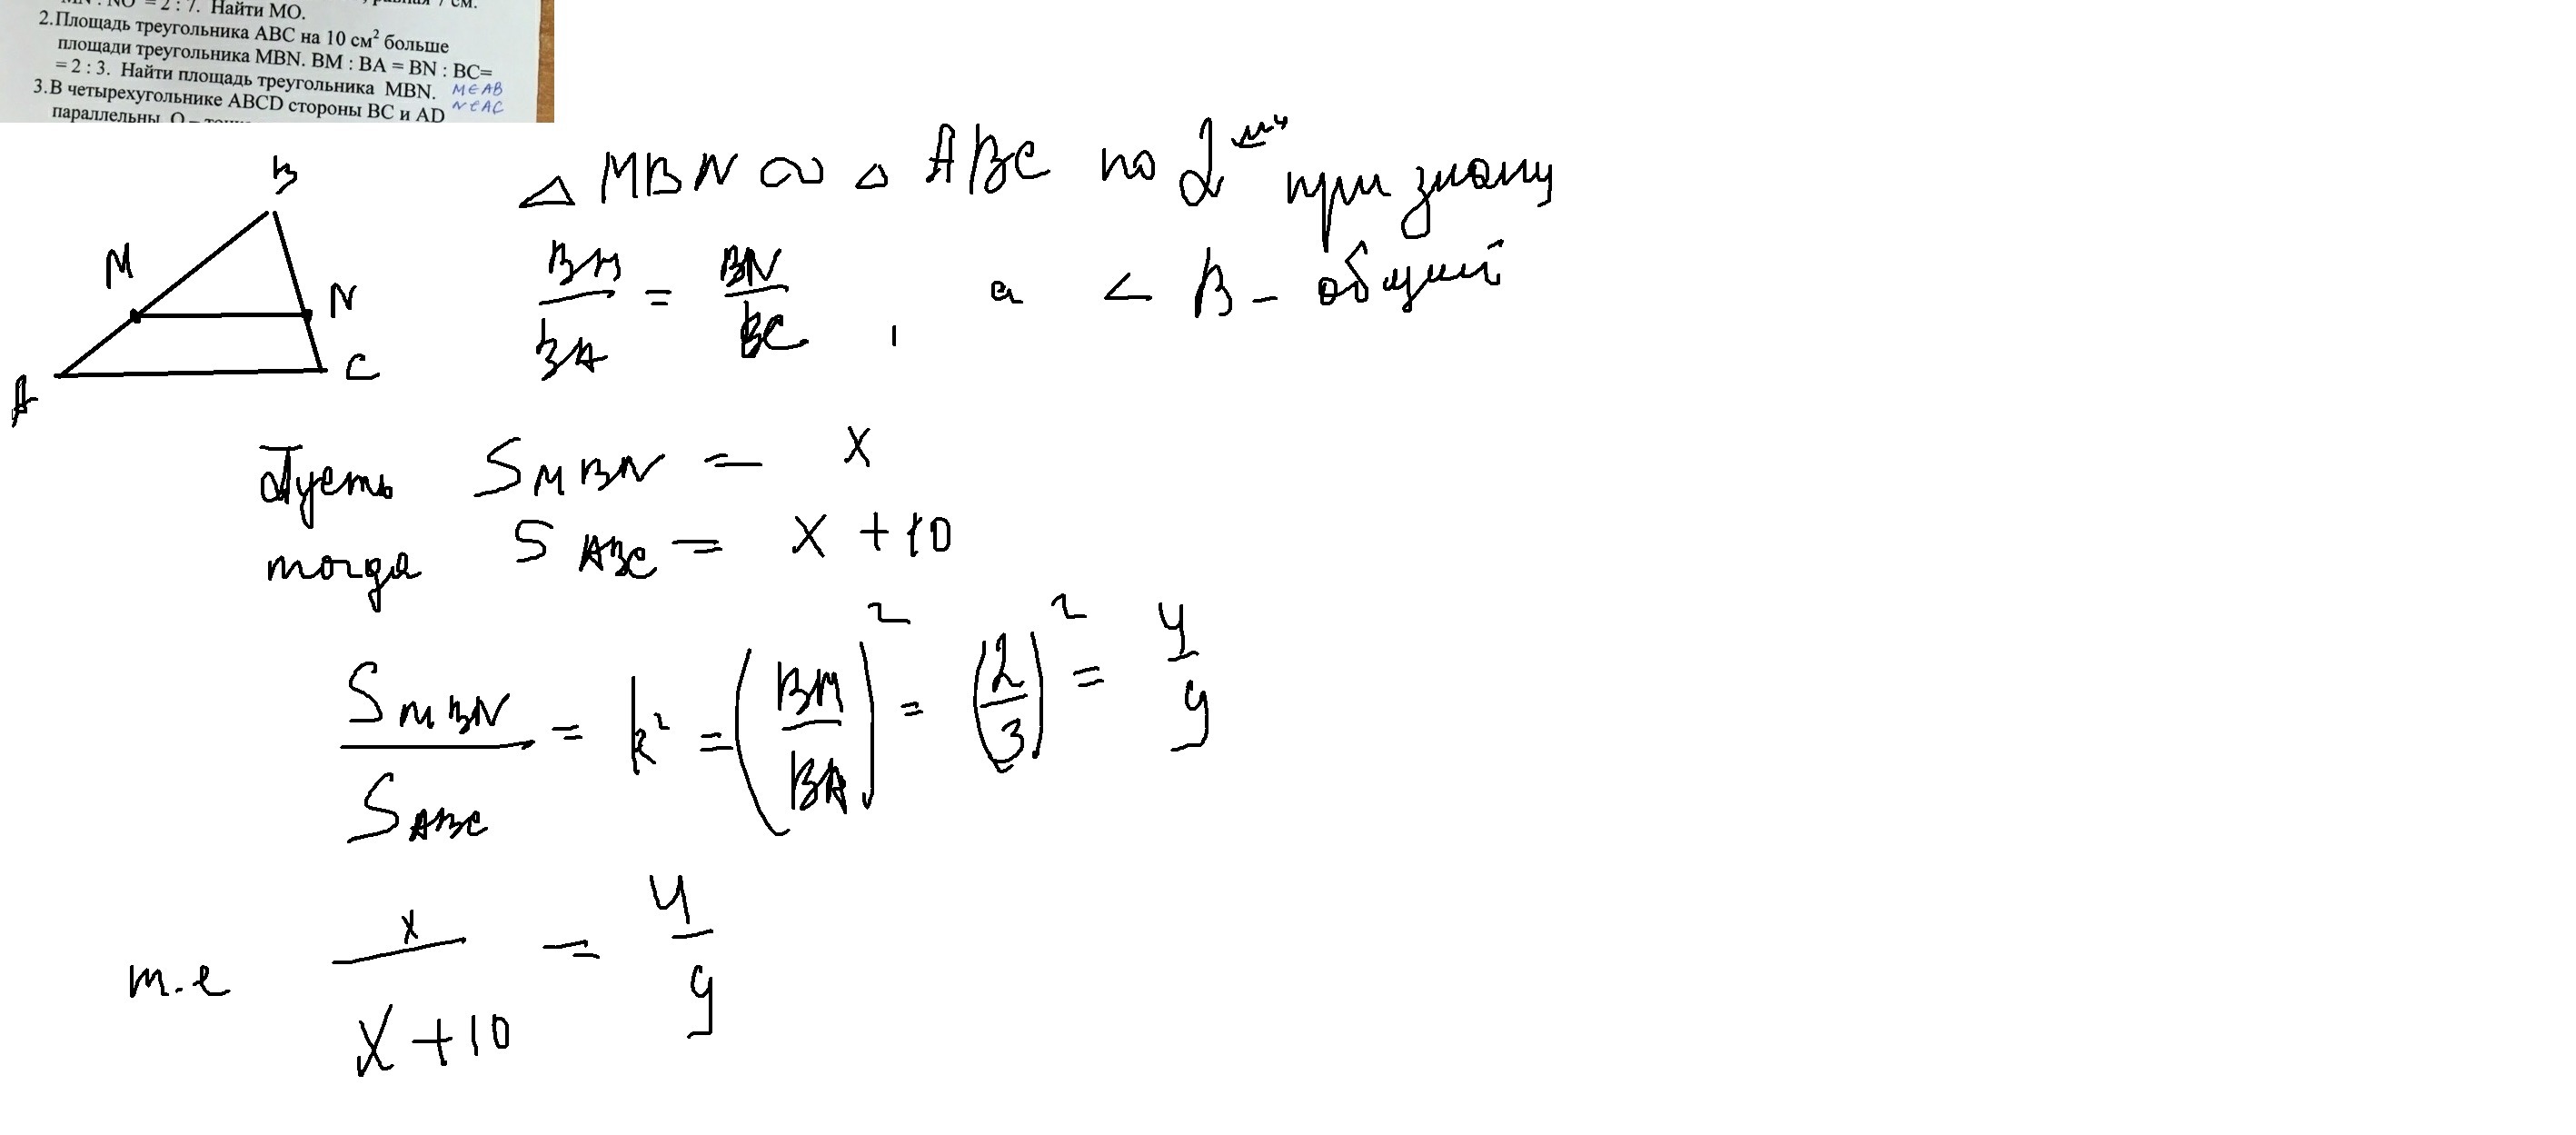 MN : NO = 2 : 7. Найти МО.
2.Площадь треугольника АВС на 10 см² больше
площади треугольника MBN. BM : BA = BN : BC=
= 2 : 3. Найти площадь треугольника MBN. M∈AB
N∈AC
3.В четырехугольнике ABCD стороны BC и AD
параллельны. О –
B
M
N
A
C
△ MBN ∾ △ ABC по 2 признаку
BM/BA = BN/BC , а ∠ B - общий
Пусть S MBN = x
тогда S ABC = x + 10
S MBN / S ABC = k² = (BM/BA)² = (2/3)² = 4/9
т.е x / x + 10 = 4/9